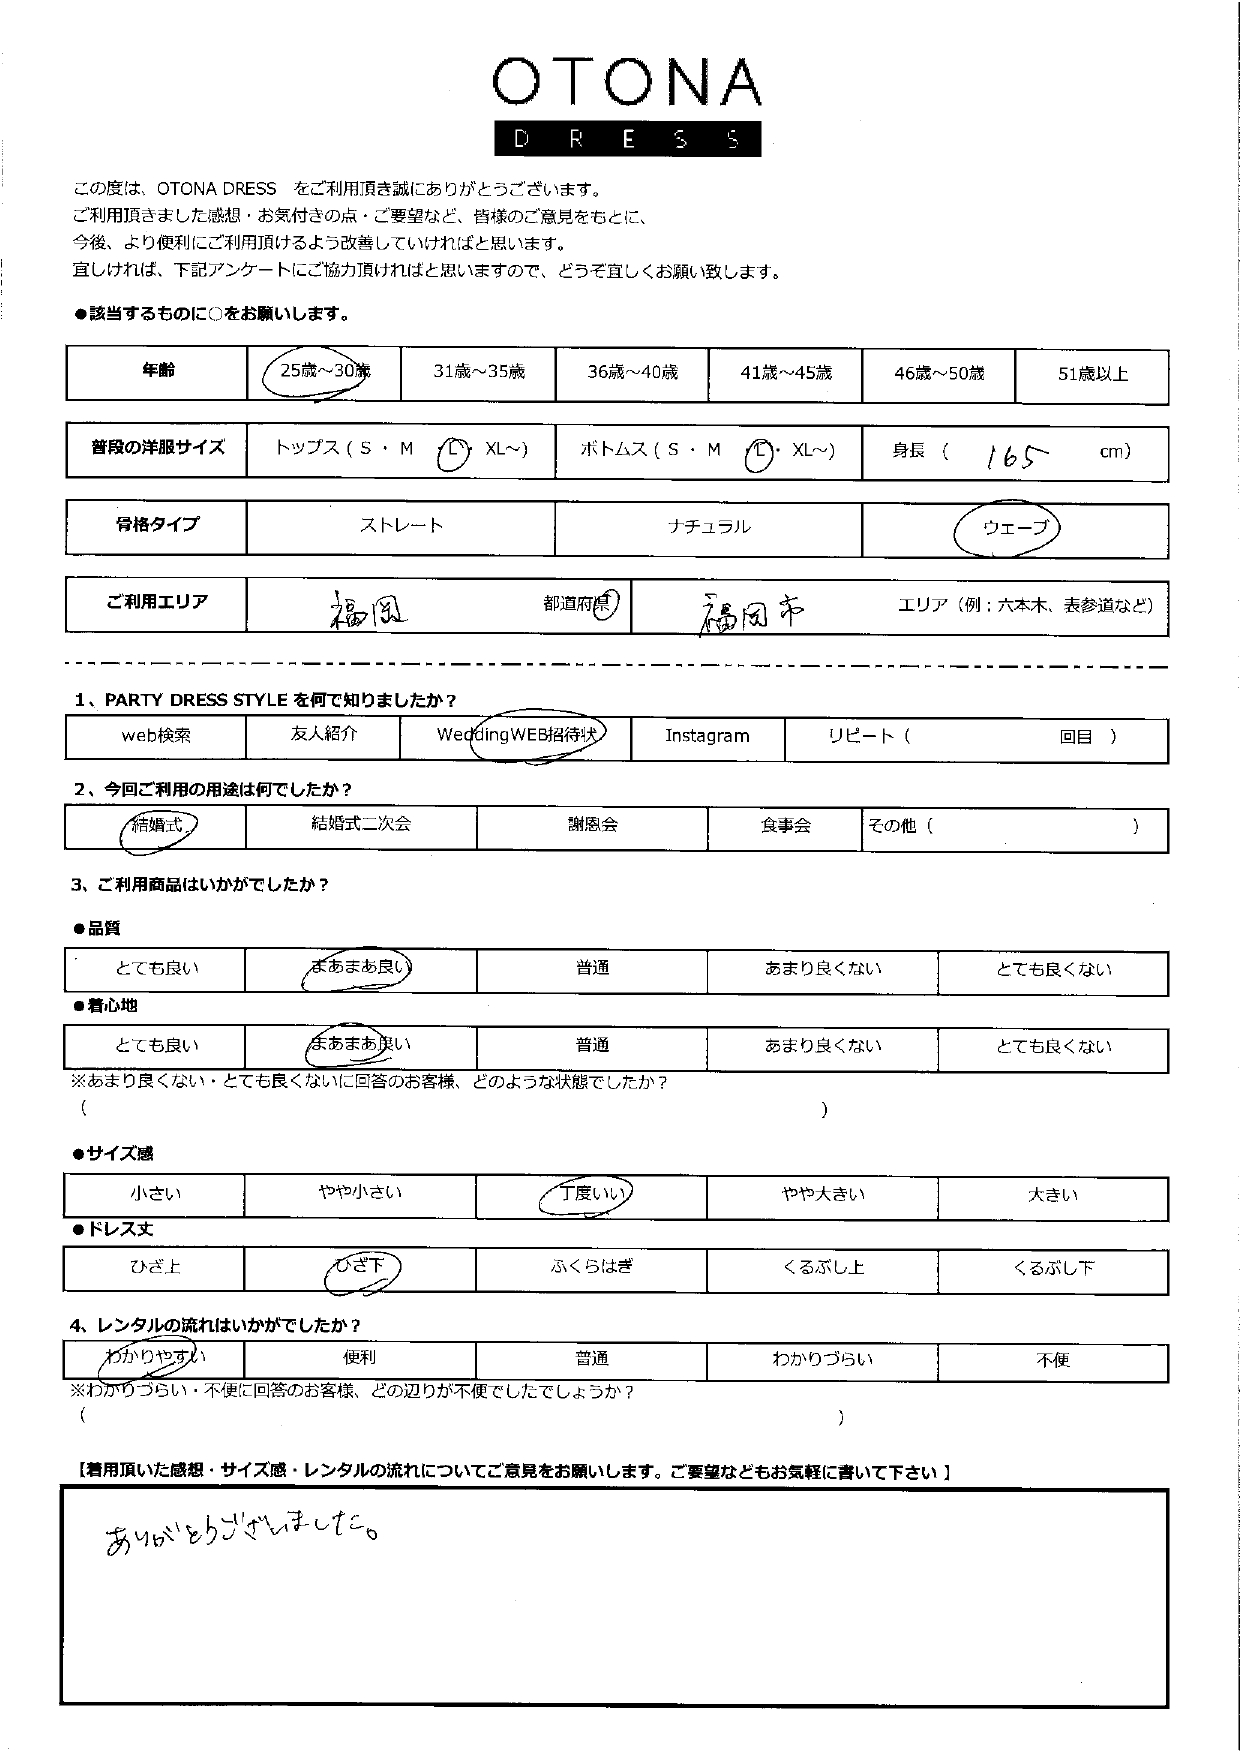 OTONA
DRESS
この度は、OTONA DRESS　をご利用頂き誠にありがとうございます。
ご利用頂きました感想・お気付きの点・ご要望など、皆様のご意見をもとに、
今後、より便利にご利用頂けるよう改善していければと思います。
宜しければ、下記アンケートにご協力頂ければと思いますので、どうぞ宜しくお願い致します。
●該当するものに○をお願いします。
年齢 25歳～30歳 31歳～35歳 36歳～40歳 41歳～45歳 46歳～50歳 51歳以上
普段の洋服サイズ トップス ( S ・ M ・L・ XL～) ボトムス ( S ・ M ・L・ XL～) 身長 ( 165 cm)
骨格タイプ ストレート ナチュラル ウェーブ
ご利用エリア 福岡 都道府県 福岡市 エリア（例；六本木、表参道など）
1、PARTY DRESS STYLE を何で知りましたか？
web検索 友人紹介 WeddingWEB招待状 Instagram リピート ( 回目 )
2、今回ご利用の用途は何でしたか？
結婚式 結婚式二次会 謝恩会 食事会 その他 ( )
3、ご利用商品はいかがでしたか？
●品質
とても良い まあまあ良い 普通 あまり良くない とても良くない
●着心地
とても良い まあまあ良い 普通 あまり良くない とても良くない
※あまり良くない・とても良くないに回答のお客様、どのような状態でしたか？
( )
●サイズ感
小さい やや小さい 丁度いい やや大きい 大きい
●ドレス丈
ひざ上 ひざ下 ふくらはぎ くるぶし上 くるぶし下
4、レンタルの流れはいかがでしたか？
わかりやすい 便利 普通 わかりづらい 不便
※わかりづらい・不便に回答のお客様、どの辺りが不便でしたでしょうか？
( )
【着用頂いた感想・サイズ感・レンタルの流れについてご意見をお願いします。ご要望などもお気軽に書いて下さい】
ありがとうございました。